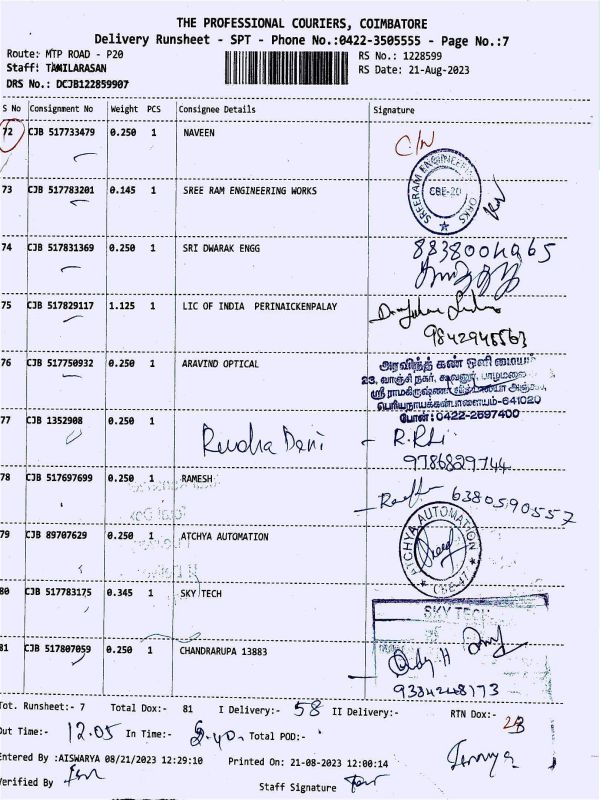 THE PROFESSIONAL COURIERS, COIMBATORE
Delivery Runsheet - SPT - Phone No.:0422-3505555 - Page No.:7
Route: MTP ROAD - P20
RS No.: 1228599
Staff: TAMILARASAN
RS Date: 21-Aug-2023
DRS No.: DCJB122859907
S No Consignment No Weight PCS Consignee Details Signature
72 CJB 517733479 0.250 1 NAVEEN
C/N
73 CJB 517783201 0.145 1 SREE RAM ENGINEERING WORKS
SREERAM ENGINEERING WORKS
CBE-20
74 CJB 517831369 0.250 1 SRI DWARAK ENGG
75 CJB 517829117 1.125 1 LIC OF INDIA PERINAICKENPALAY
76 CJB 517750932 0.250 1 ARAVIND OPTICAL
அரவிந்த் கண் ஒளி மையம்
23, வாஞ்சி நகர்,
பெரியநாயக்கன்பாளையம்-641020
போன்:0422-2697400
77 CJB 1352908 0.250 1
9786829744
78 CJB 517697699 0.250 1 RAMESH
6380590557
79 CJB 89707629 0.250 1 ATCHYA AUTOMATION
ATCHYA AUTOMATION
CBE-47
80 CJB 517783175 0.345 1 SKY TECH
SKY TECH
81 CJB 517807059 0.250 1 CHANDRARUPA 13883
Tot. Runsheet:- 7 Total Dox:- 81 I Delivery:- 58 II Delivery:- RTN Dox:- 23
Out Time:- 12.05 In Time:- Total POD:-
Entered By :AISWARYA 08/21/2023 12:29:10 Printed On: 21-08-2023 12:00:14
Verified By
Staff Signature